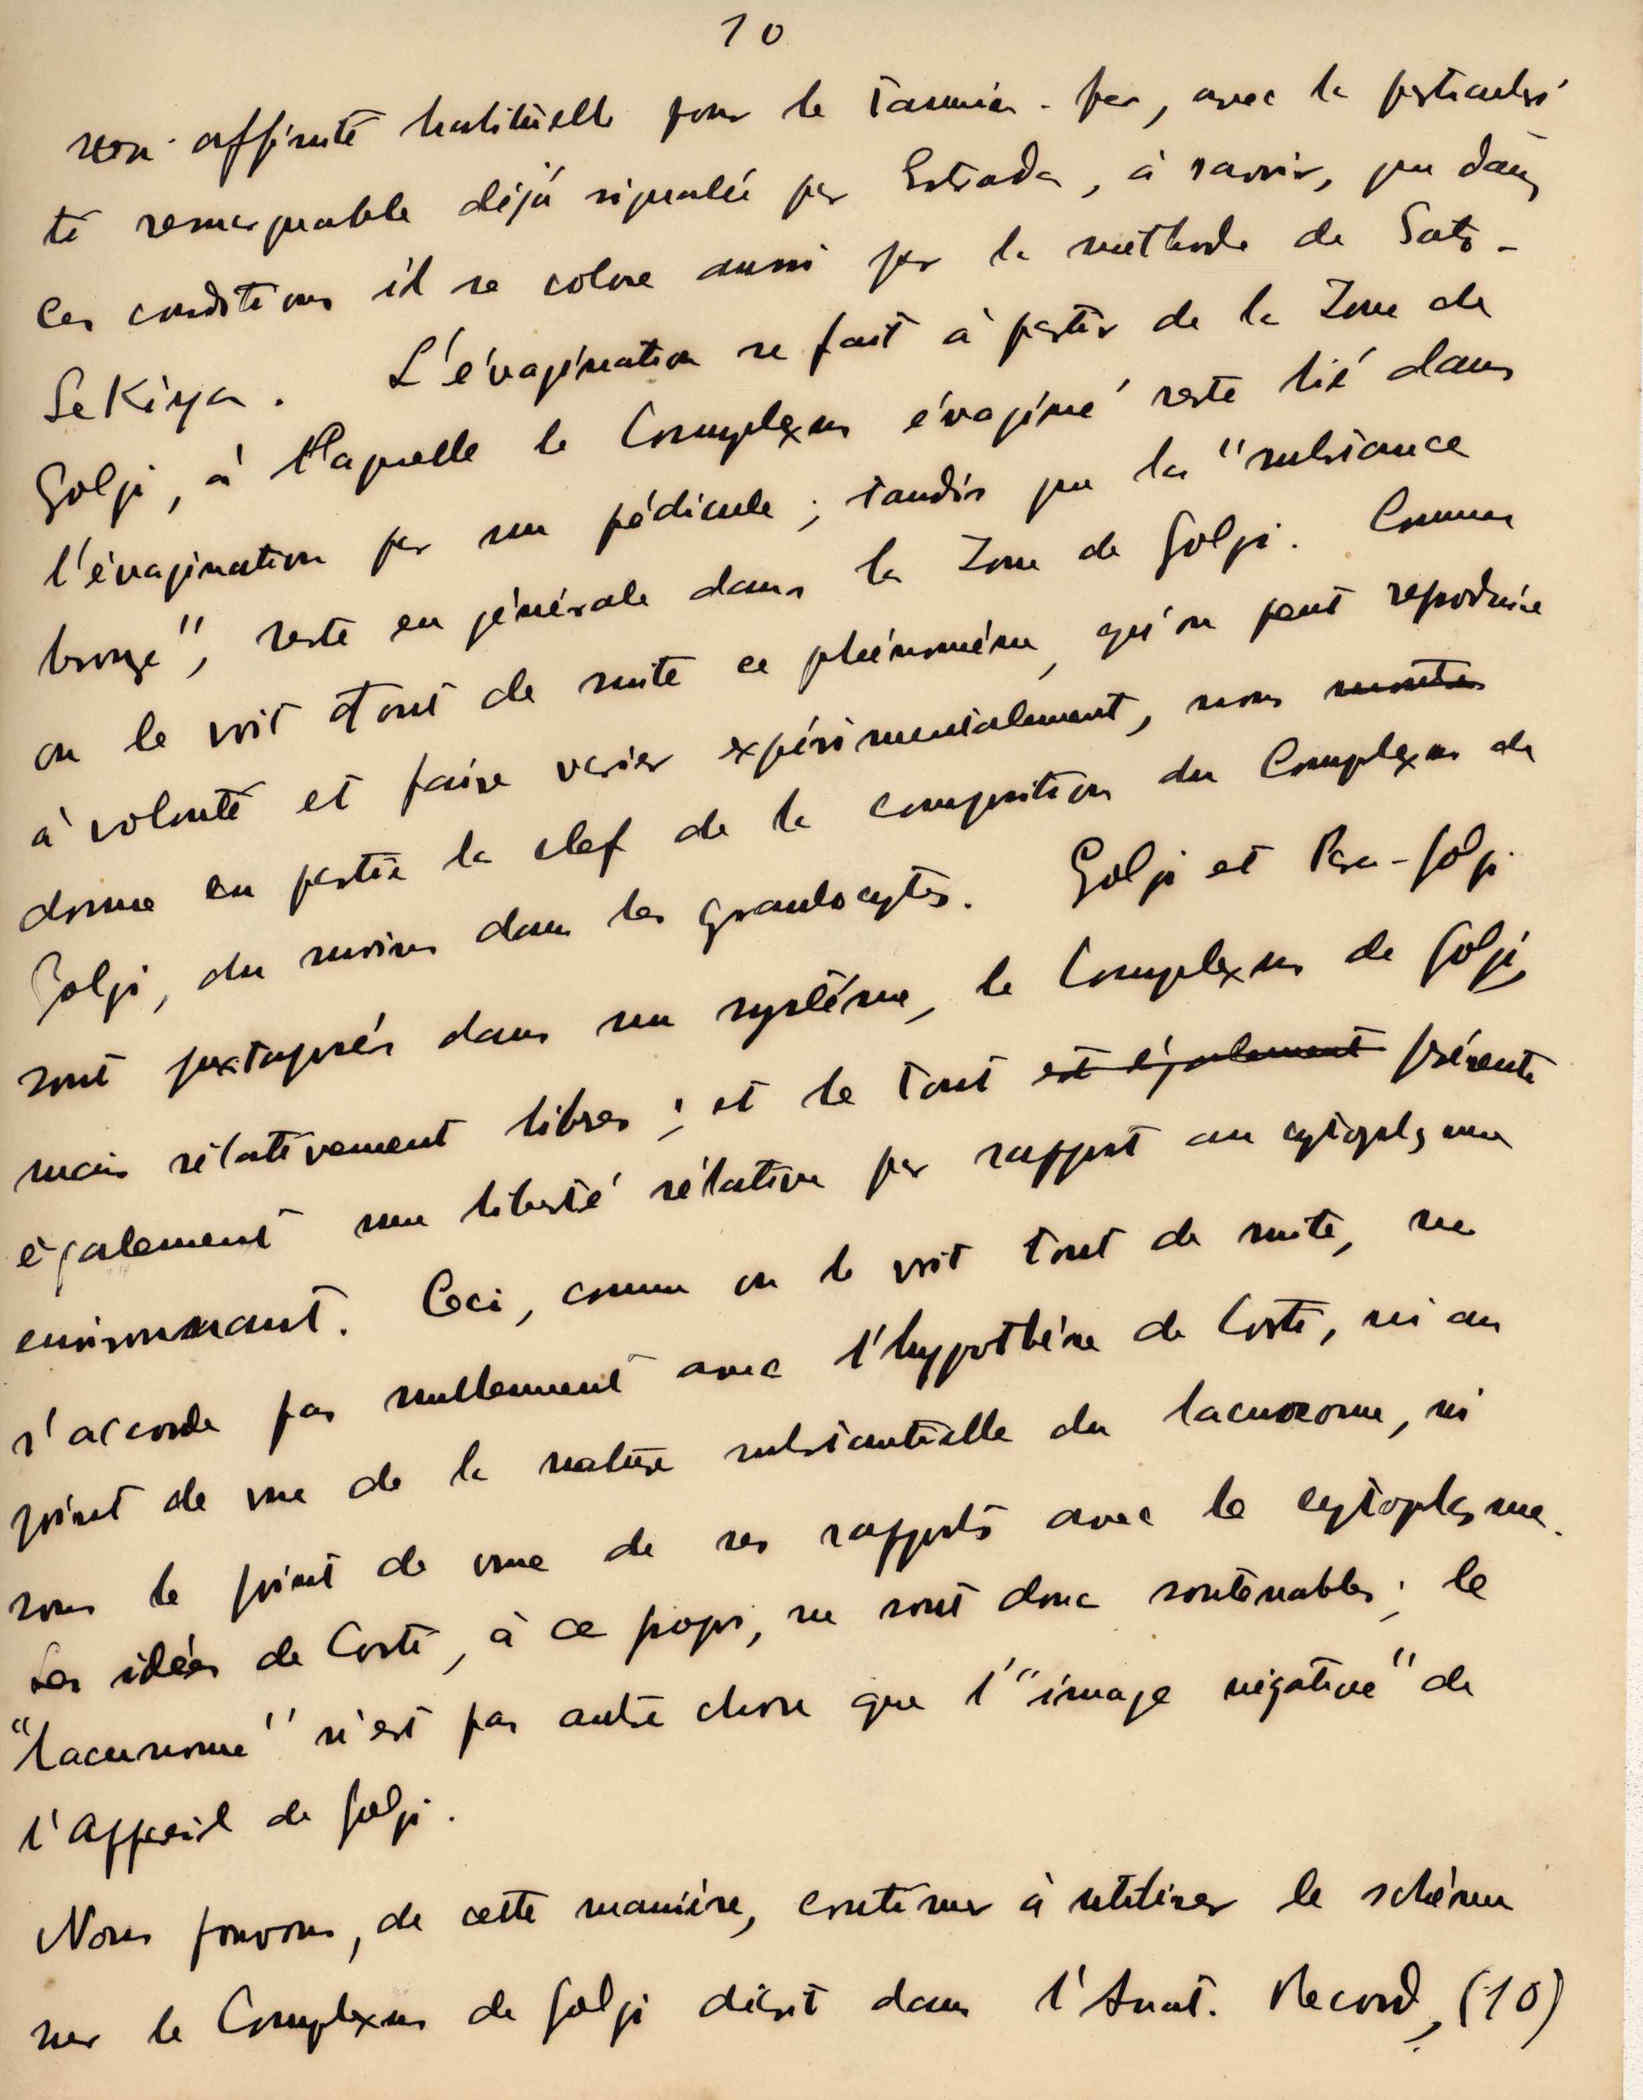 10
son affinité habituelle pour le tannin-fer, avec la particulari
té remarquable déjà signalée par Estrada, à savoir, que dans
ces conditions il se colore aussi par la méthode de Sato-
Sekiya. L'évagination se fait à partir de la Zone de
Golgi, à laquelle le Complexus évaginé reste lié dans
l'évagination par un pédicule ; tandis que la "substance
bronze", reste en générale dans la Zone de Golgi. Comme
on le voit tout de suite ce phénomène, qu'on peut reproduire
à volonté et faire varier expérimentalement, nous montre
donne en partie la clef de la composition du Complexus de
Golgi, du moins dans les granulocytes. Golgi et Para-Golgi
sont juxtaposés dans un système, le Complexus de Golgi,
mais rélativement libres ; et le tout est également présente
également une liberté rélative par rapport au cytoplasme
environnant. Ceci, comme on le voit tout de suite, ne
s'accorde pas nullement avec l'hypothèse de Corti, ni au
point de vue de la nature substantielle du lacunome, ni
sous le point de vue de ses rapports avec le cytoplasme.
Les idées de Corti, à ce propos, ne sont donc soutenables ; le
"lacunome" n'est pas autre chose que l'"image négative" de
l'Appareil de Golgi.
Nous pouvons, de cette manière, continuer à utiliser le schéma
sur le Complexus de Golgi décrit dans l'Anat. Record, (10)